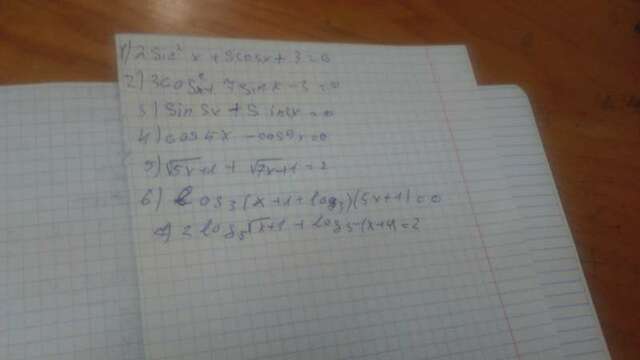 1) 2 sin² x + 5cosx + 3 = 0
2) 3cos²x + 7sinx - 3 = 0
3) Sin 5x + Sin x = 0
4) cos 4x - cos 9x = 0
5) √5x+1 + √7x+1 = 2
6) log₃(x+1+log₃)(5x+1) = 0
2 log₅ √x+1 + log₅ (x+4) = 2